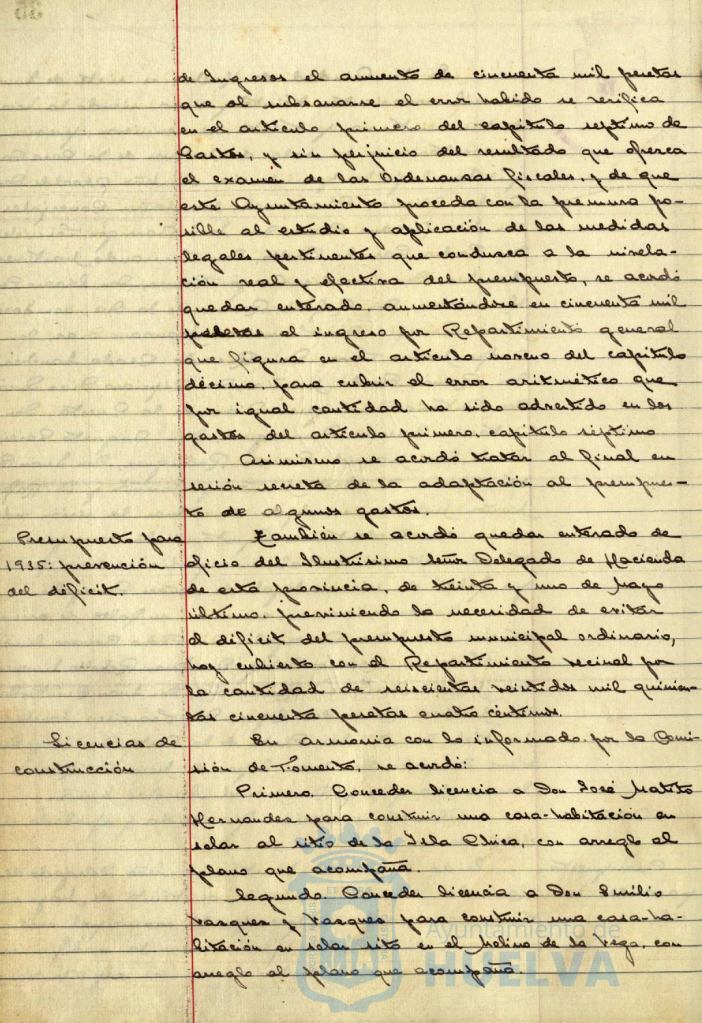 de Ingresos el aumento de cincuenta mil pesetas
que al subsanarse el error habido se verifica
en el artículo primero del capítulo septimo de
Gastos, y sin perjuicio del resultado que ofrezca
el examen de las Ordenanzas fiscales, y de que
este Ayuntamiento proceda con la premura po-
sible al estudio y aplicación de las medidas
legales pertinentes que conduzca a la nivela-
ción real y efectiva del presupuesto, se acordó
quedar enterado, aumentándose en cincuenta mil
pesetas el ingreso por Repartimiento general
que figura en el artículo noveno del capítulo
décimo, para cubrir el error aritmético que
por igual cantidad ha sido advertido en los
gastos del artículo primero, capítulo séptimo
Asimismo se acordó tratar al final en
sesión secreta de la adaptación al presupues-
to de algunos gastos.
Presupuesto para
1935: prevención
del déficit.
También se acordó quedar enterado de
oficio del Ilustrísimo Señor Delegado de Hacienda
de esta provincia, de treinta y uno de Mayo
último, previniendo la necesidad de evitar
el déficit del presupuesto municipal ordinario,
hoy cubierto con el Repartimiento vecinal por
la cantidad de seiscientas veintidos mil quinien-
tas cincuenta pesetas cuatro céntimos.
Licencias de
construcción
En armonía con lo informado por la Comi-
sión de Fomento, se acordó:
Primero. Conceder licencia a Don José Matito
Hernandez para construir una casa-habitación en
solar al sitio de la Isla Chica, con arreglo al
plano que acompaña.
Segundo. Conceder licencia a Don Emilio
Vazquez y Vazquez para construir una casa-ha-
bitación en solar sito en el Molino de la Vega, con
arreglo al plano que acompaña.
Ayuntamiento de
HUELVA